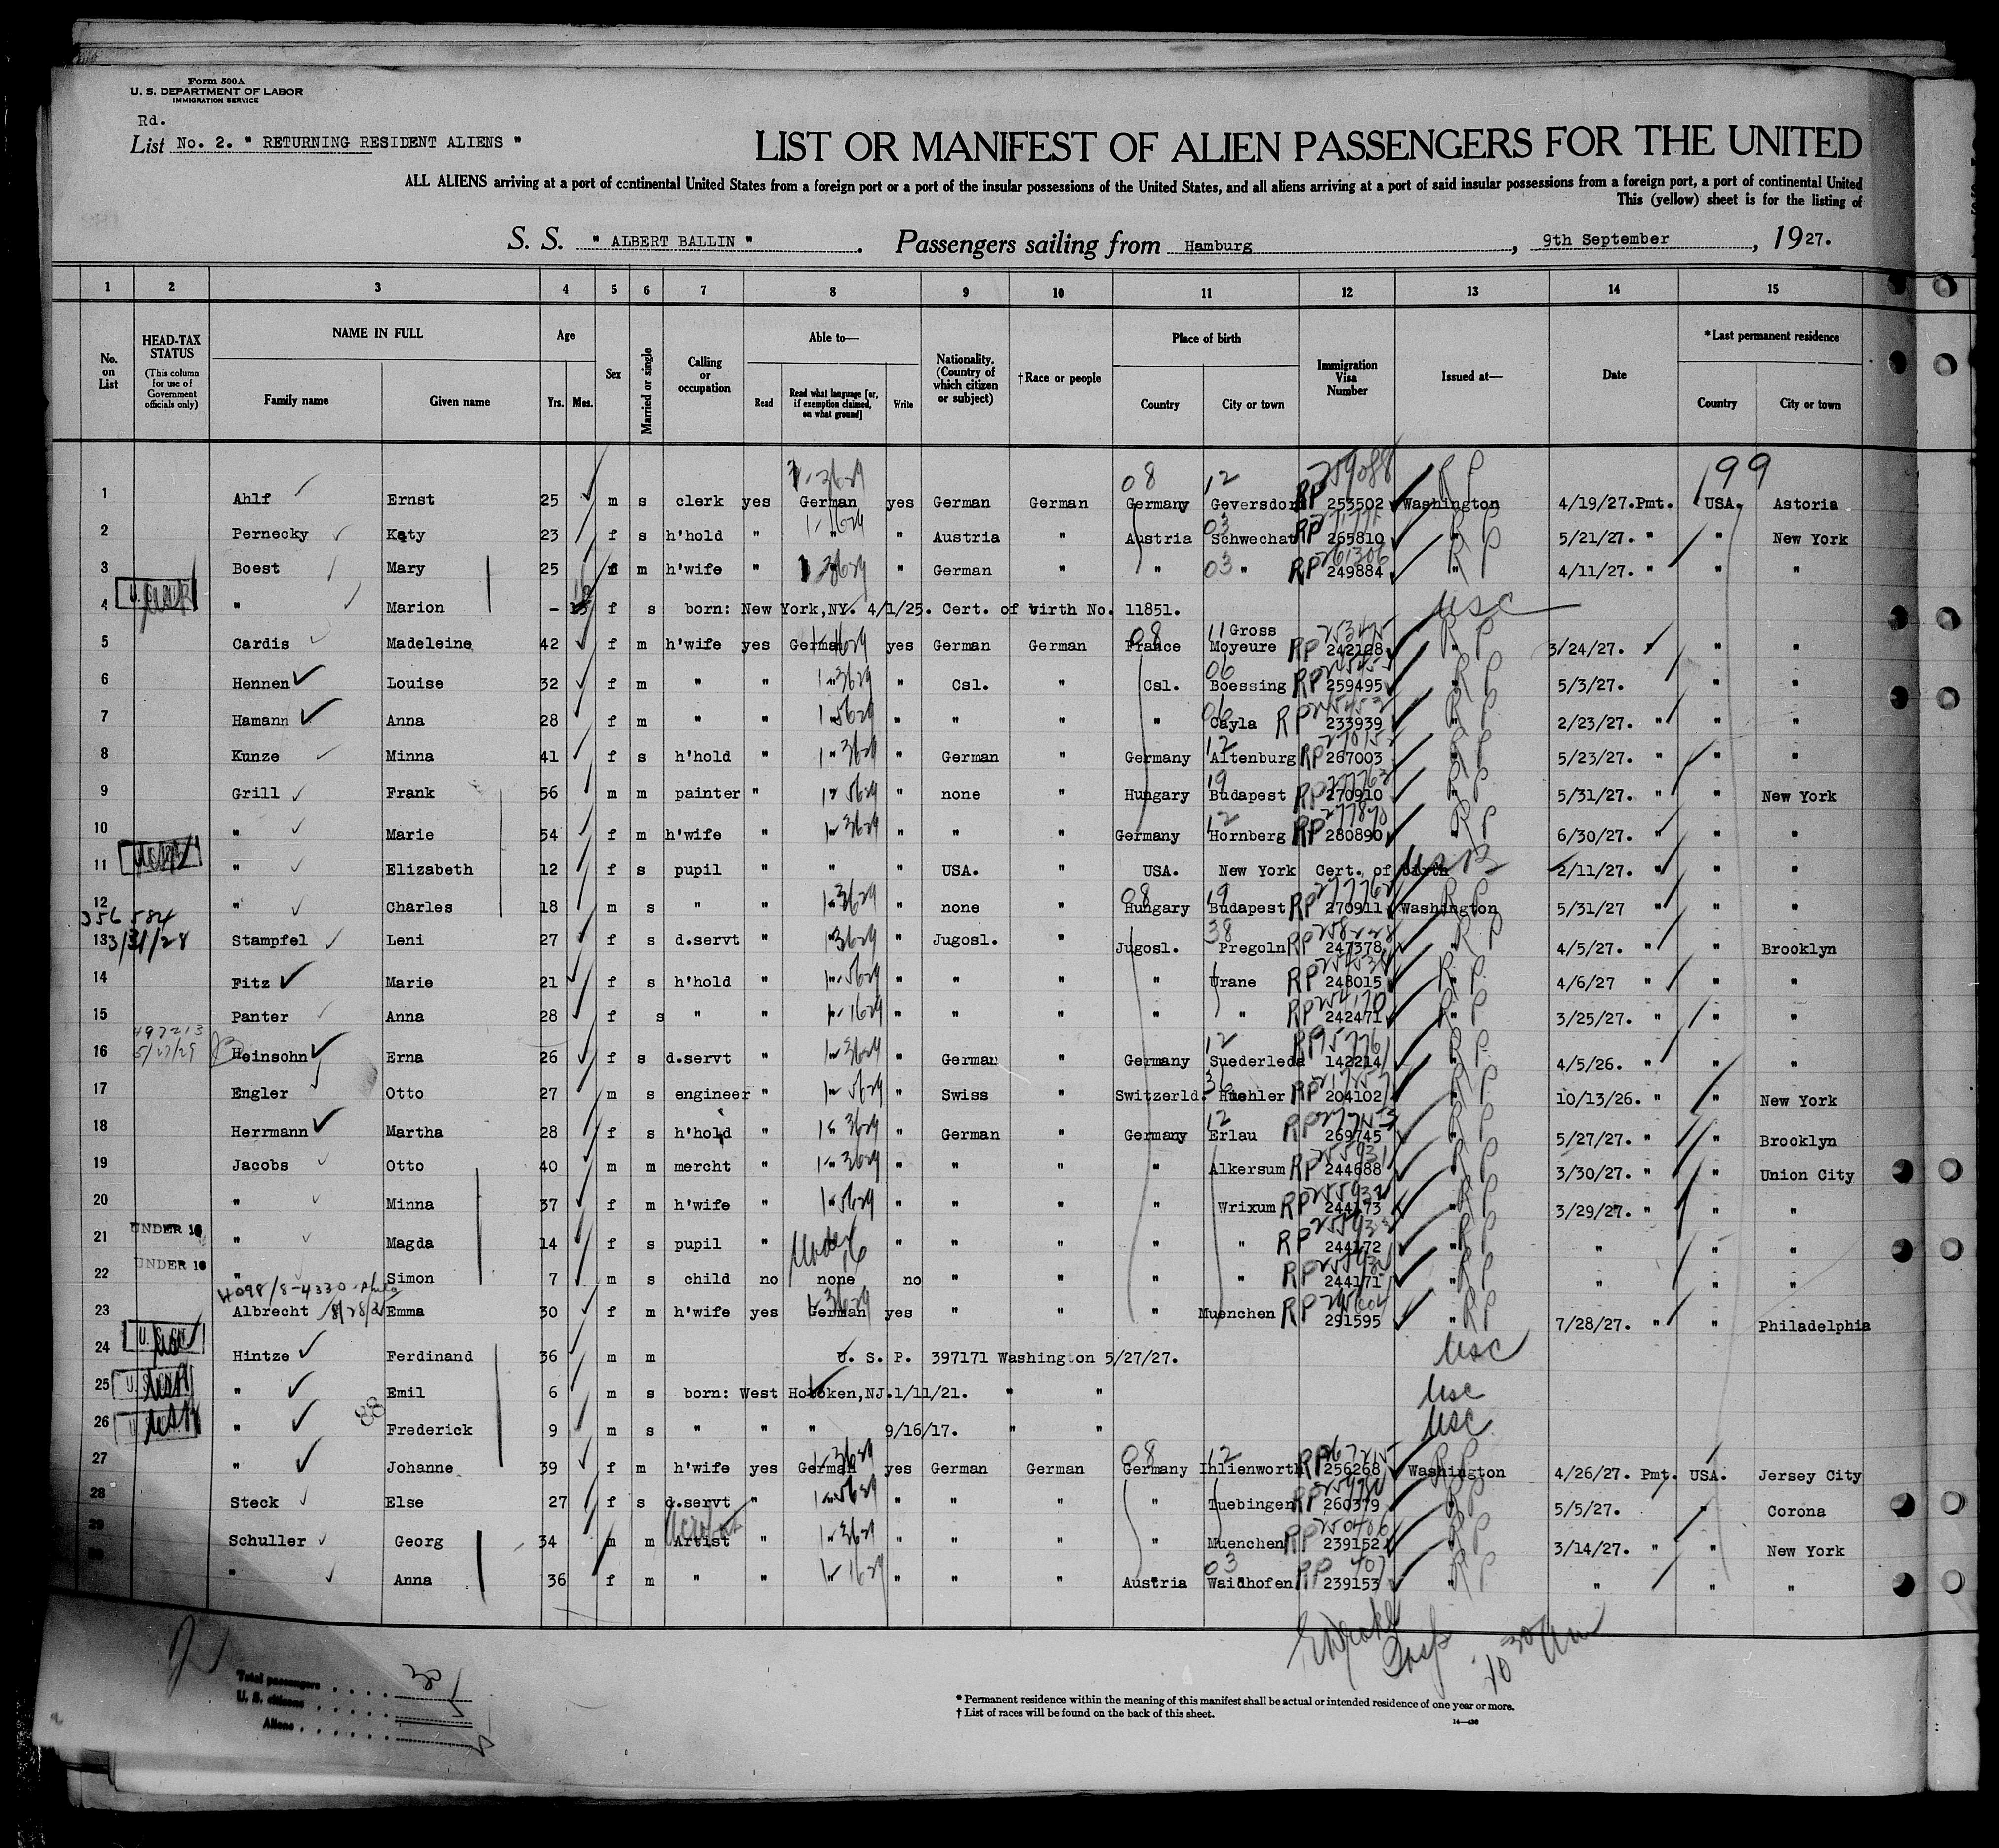 Form 500A
U. S. DEPARTMENT OF LABOR
IMMIGRATION SERVICE
Rd.
List No. 2. " RETURNING RESIDENT ALIENS "
LIST OR MANIFEST OF ALIEN PASSENGERS FOR THE UNITED
ALL ALIENS arriving at a port of continental United States from a foreign port or a port of the insular possessions of the United States, and all aliens arriving at a port of said insular possessions from a foreign port, a port of continental United
This (yellow) sheet is for the listing of
S. S. " ALBERT BALLIN ". Passengers sailing from Hamburg, 9th September, 1927.
1 2 3 4 5 6 7 8 9 10 11 12 13 14 15
No. on List
HEAD-TAX STATUS
(This column for use of Government officials only)
NAME IN FULL
Family name Given name
Age
Yrs. Mos.
Sex
Married or single
Calling or occupation
Able to—
Read Read what language [or, if exemption claimed, on what ground] Write
Nationality. (Country of which citizen or subject)
†Race or people
Place of birth
Country City or town
Immigration Visa Number
Issued at—
Date
*Last permanent residence
Country City or town
259088
08 12 RP 199
1 Ahlf Ernst 25 m s clerk yes German yes German German Germany Geversdorf RP 253502 Washington 4/19/27. Pmt. USA. Astoria
2 Pernecky Katy 23 f s h'hold " " " Austria " Austria 03 Schwechat RP 265810 " RP 5/21/27. " " New York
3 Boest Mary 25 m h'wife " " " German " " 03 " RP 261306 249884 " RP 4/11/27. " " "
4 " Marion - f s born: New York,NY. 4/1/25. Cert. of birth No. 11851. USC
5 Cardis Madeleine 42 f m h'wife yes German yes German German 08 France 11 Gross Moyeure RP 242108 " RP 3/24/27. " "
6 Hennen Louise 32 f m " " " Csl. " Csl. 06 Boessing RP 259495 " RP 5/3/27. " "
7 Hamann Anna 28 f m " " " " " " Cayla RP 233939 " RP 2/23/27. " " "
8 Kunze Minna 41 f s h'hold " " German " Germany 12 Altenburg RP 267003 " RP 5/23/27. " " "
9 Grill Frank 56 m m painter " " none " Hungary 19 Budapest RP 270910 " RP 5/31/27. " " New York
10 " Marie 54 f m h'wife " " " " Germany 12 Hornberg RP 277890 280890 " RP 6/30/27. " " "
11 " Elizabeth 12 f s pupil " " " USA. " USA. New York Cert. of birth 2/11/27. " " "
12 " Charles 18 m s " " " none " 08 Hungary 19 Budapest RP 270911 Washington RP 5/31/27 " " "
356584
3/31/28
13 Stampfel Leni 27 f s d.servt " " Jugosl. " Jugosl. 38 Pregoln RP 247378 " RP 4/5/27. " " Brooklyn
14 Fitz Marie 21 f s h'hold " " " " " Urane RP 248015 " RP 4/6/27 " " "
15 Panter Anna 28 f s " " " " " " " RP 254170 242471 " RP 3/25/27. " " "
497213
5/27/29
16 Heinsohn Erna 26 f s d.servt " " German " Germany 12 Suederleda RP 142214 " RP 4/5/26. " " "
17 Engler Otto 27 m s engineer " " Swiss " Switzerld. 36 Huehler RP 204102 " RP 10/13/26. " " New York
18 Herrmann Martha 28 f s h'hold " " German " Germany 12 Erlau RP 269745 " RP 5/27/27. " " Brooklyn
19 Jacobs Otto 40 m m mercht " " " " " Alkersum RP 255931 244688 " RP 3/30/27. " " Union City
20 " Minna 37 f m h'wife " " " " " Wrixum RP 255932 244173 " RP 3/29/27. " " "
UNDER 16
21 " Magda 14 f s pupil " Under 16 " " " " " RP 255933 244172 " RP " " "
UNDER 16
22 " Simon 7 m s child no none no " " " " RP 244171 " RP " " "
23 Albrecht Emma 30 f m h'wife yes German yes " " " Muenchen RP 291595 " RP 7/28/27. " " Philadelphia
24 Hintze Ferdinand 36 m m U. S. P. 397171 Washington 5/27/27. USC
25 " Emil 6 m s born: West Hoboken,NJ.1/11/21. " " USC
26 " Frederick 9 m s " " " 9/16/17. " " USC
27 " Johanne 39 f m h'wife yes German yes German German 08 Germany 12 Ihlienworth RP 256268 Washington RP 4/26/27. Pmt. USA. Jersey City
28 Steck Else 27 f s d.servt " " " " " Tuebingen RP 260379 " RP 5/5/27. " Corona
29 Schuller Georg 34 m m Artist " " " " " Muenchen RP 250406 239152 " RP 3/14/27. " " New York
30 " Anna 36 f m " " " " " Austria 03 Waidhofen RP 407 239153 " RP " " "
10 30 am
Total passengers . . . . 30
U. S. citizens . . . . . 5
Aliens . . . . .
* Permanent residence within the meaning of this manifest shall be actual or intended residence of one year or more.
† List of races will be found on the back of this sheet.